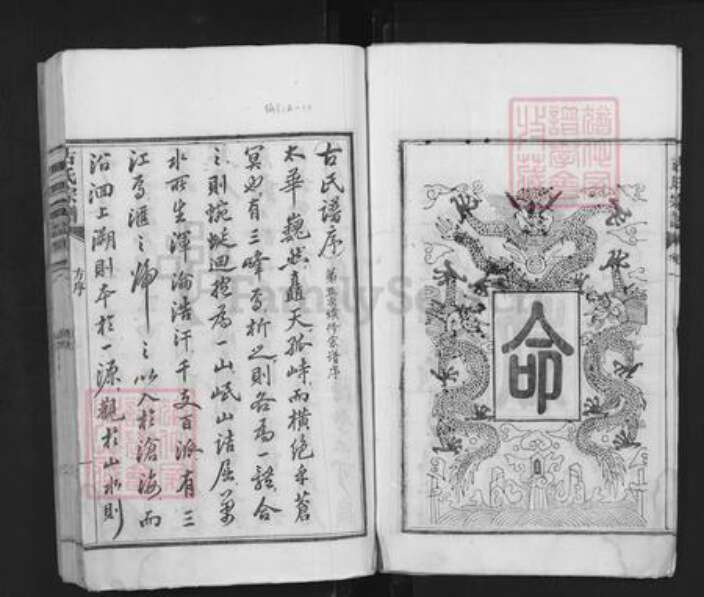 命
古氏譜序 第五次續修宗譜序
太華巍然矗天孤峙而橫絶乎蒼
冥也有三峰焉析之則各為一體合
之則蜿蜒迴抱為一山岷山詰屈萬
水所生渾淪浩汗千支百派有三
江焉滙之歸之以入於滄海而
沿洄上溯則本於一源觀於山水則
古氏宗譜
方序
FamilySearch